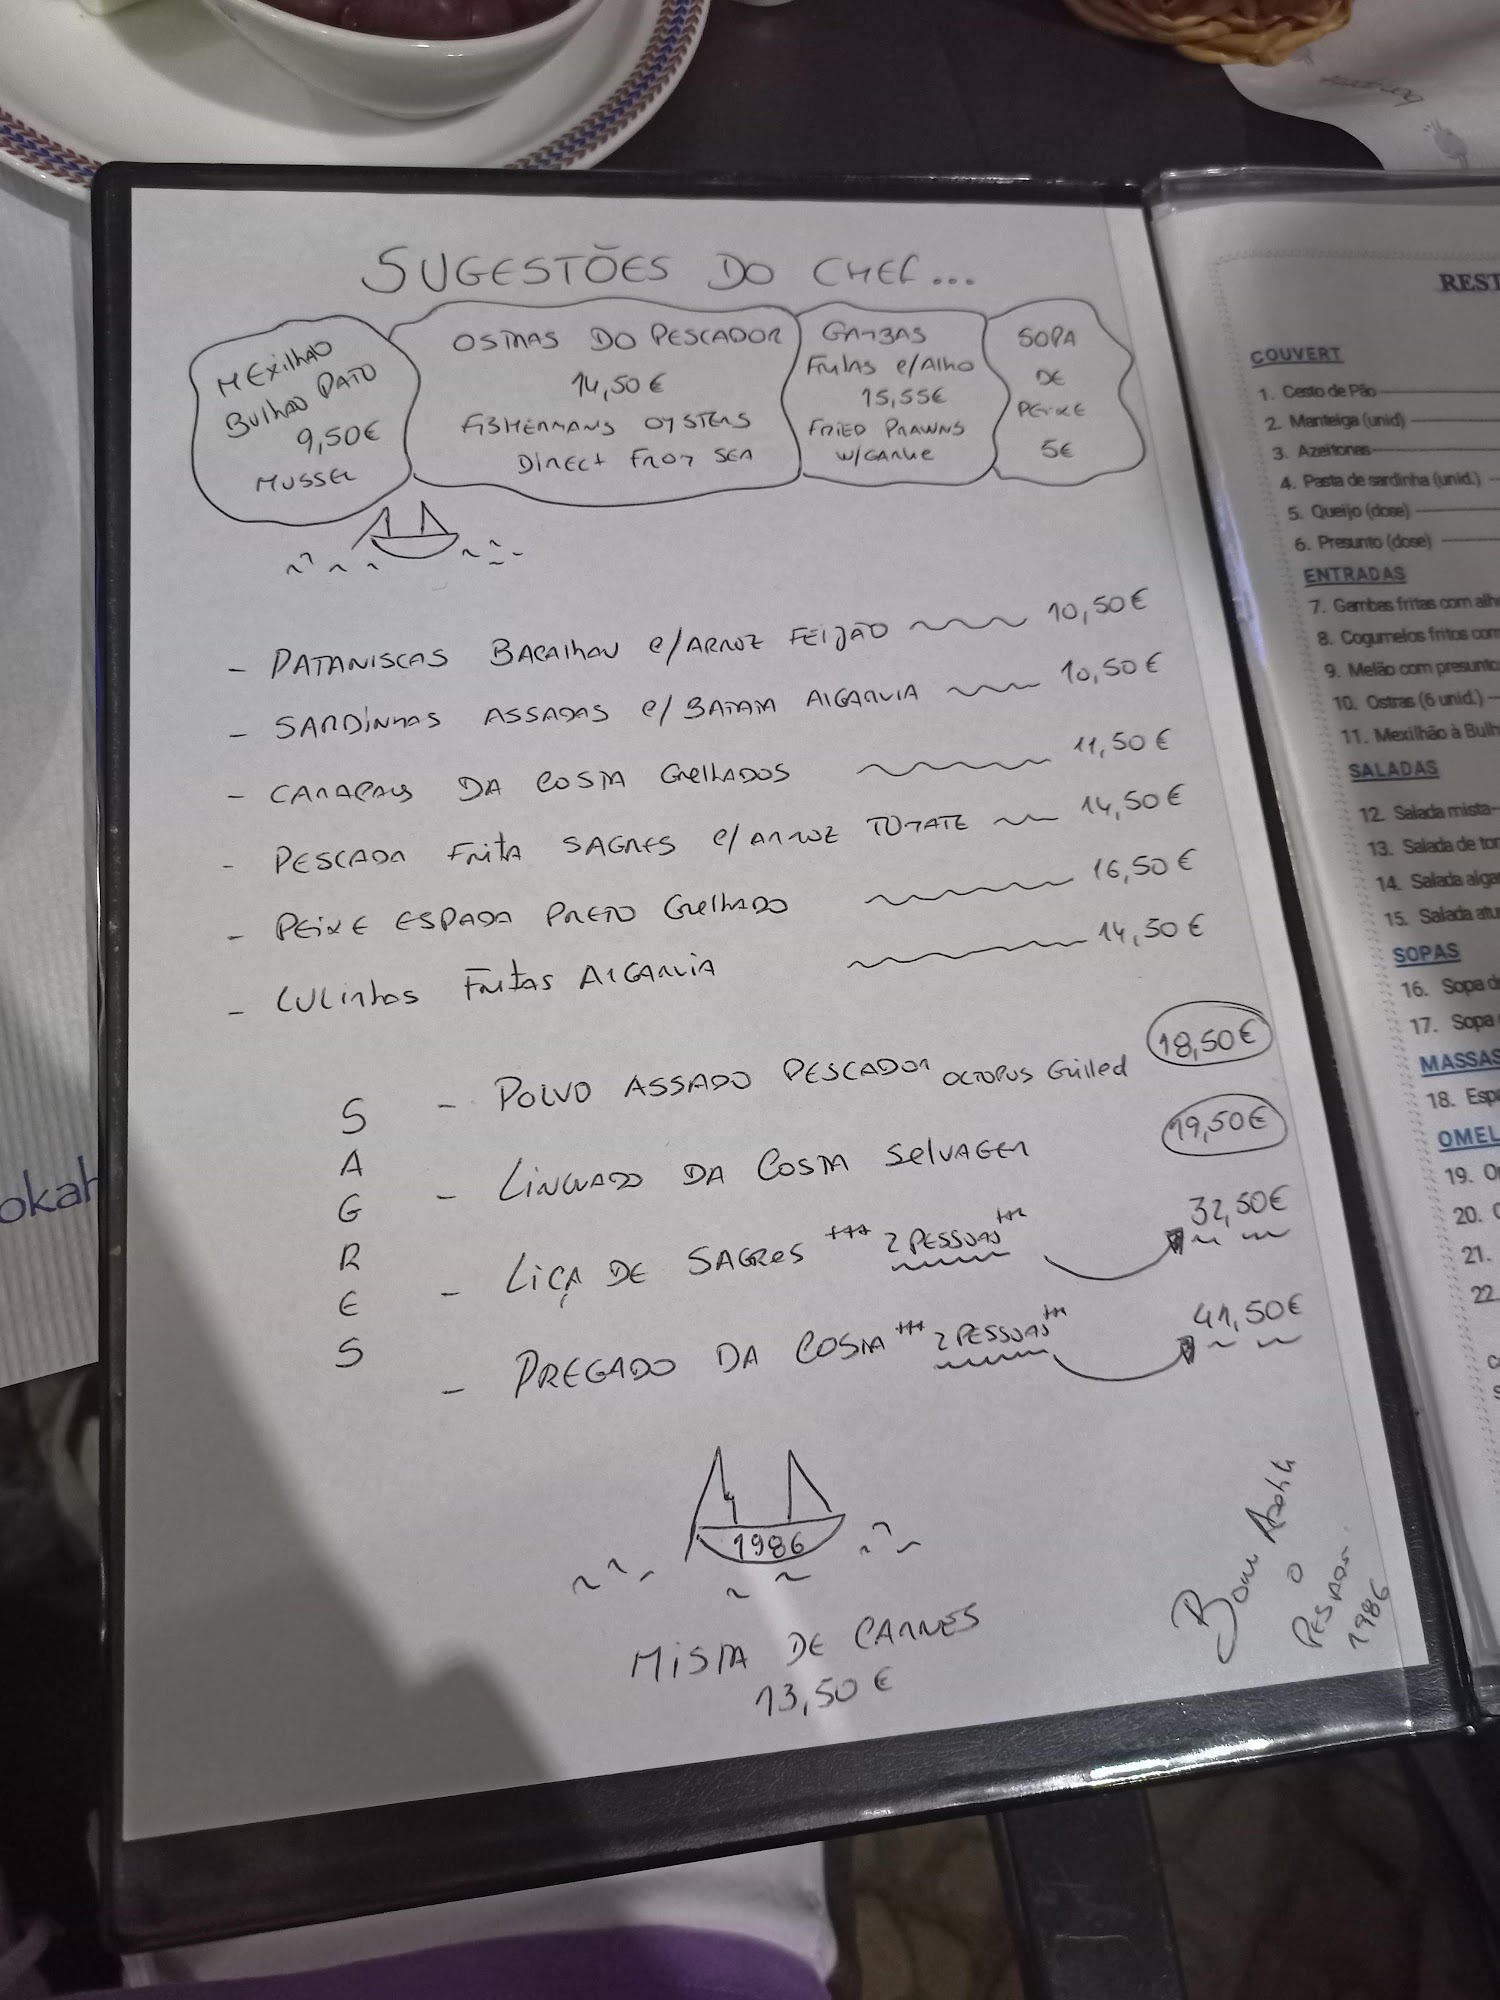 SUGESTÕES DO CHEF...
MEXILHÃO
BULHÃO PATO
9,50€
MUSSEL
OSTRAS DO PESCADOR
14,50€
FISHERMANS OYSTERS
DIRECT FROM SEA
GAMBAS
FRITAS C/ALHO
15,55€
FRIED PRAWNS
W/GARLIC
SOPA
DE
PEIXE
5€
- PATANISCAS BACALHAU C/ARROZ FEIJÃO 10,50€
- SARDINHAS ASSADAS C/ BATATA ALGARVIA 10,50€
- CARAPAUS DA COSTA GRELHADOS 11,50€
- PESCADA FRITA SAGRES C/ ARROZ TOMATE 14,50€
- PEIXE ESPADA PRETO GRELHADO 16,50€
- LULINHAS FRITAS ALGARVIA 14,50€
SAGRES
- POLVO ASSADO PESCADOR OCTOPUS GRILLED 18,50€
- LINGUADO DA COSTA SELVAGEM 19,50€
- LIÇA DE SAGRES *** 2 PESSOAS *** 32,50€
- PREGADO DA COSTA *** 2 PESSOAS *** 41,50€
1986
MISTA DE CARNES
13,50€
Bom
O
PESCADOR
1986
REST
COUVERT
1. Cesto de Pão
2. Manteiga (unid)
3. Azeitonas
4. Pasta de sardinha (unid.)
5. Queijo (dose)
6. Presunto (dose)
ENTRADAS
7. Gambas fritas com alh
8. Cogumelos fritos com
9. Melão com presunto
10. Ostras (6 unid.)
11. Mexilhão à Bulh
SALADAS
12. Salada mista
13. Salada de tom
14. Salada alga
15. Salada atu
SOPAS
16. Sopa d
17. Sopa
MASSAS
18. Esp
OMEL
19. O
20.
21.
22.
okah